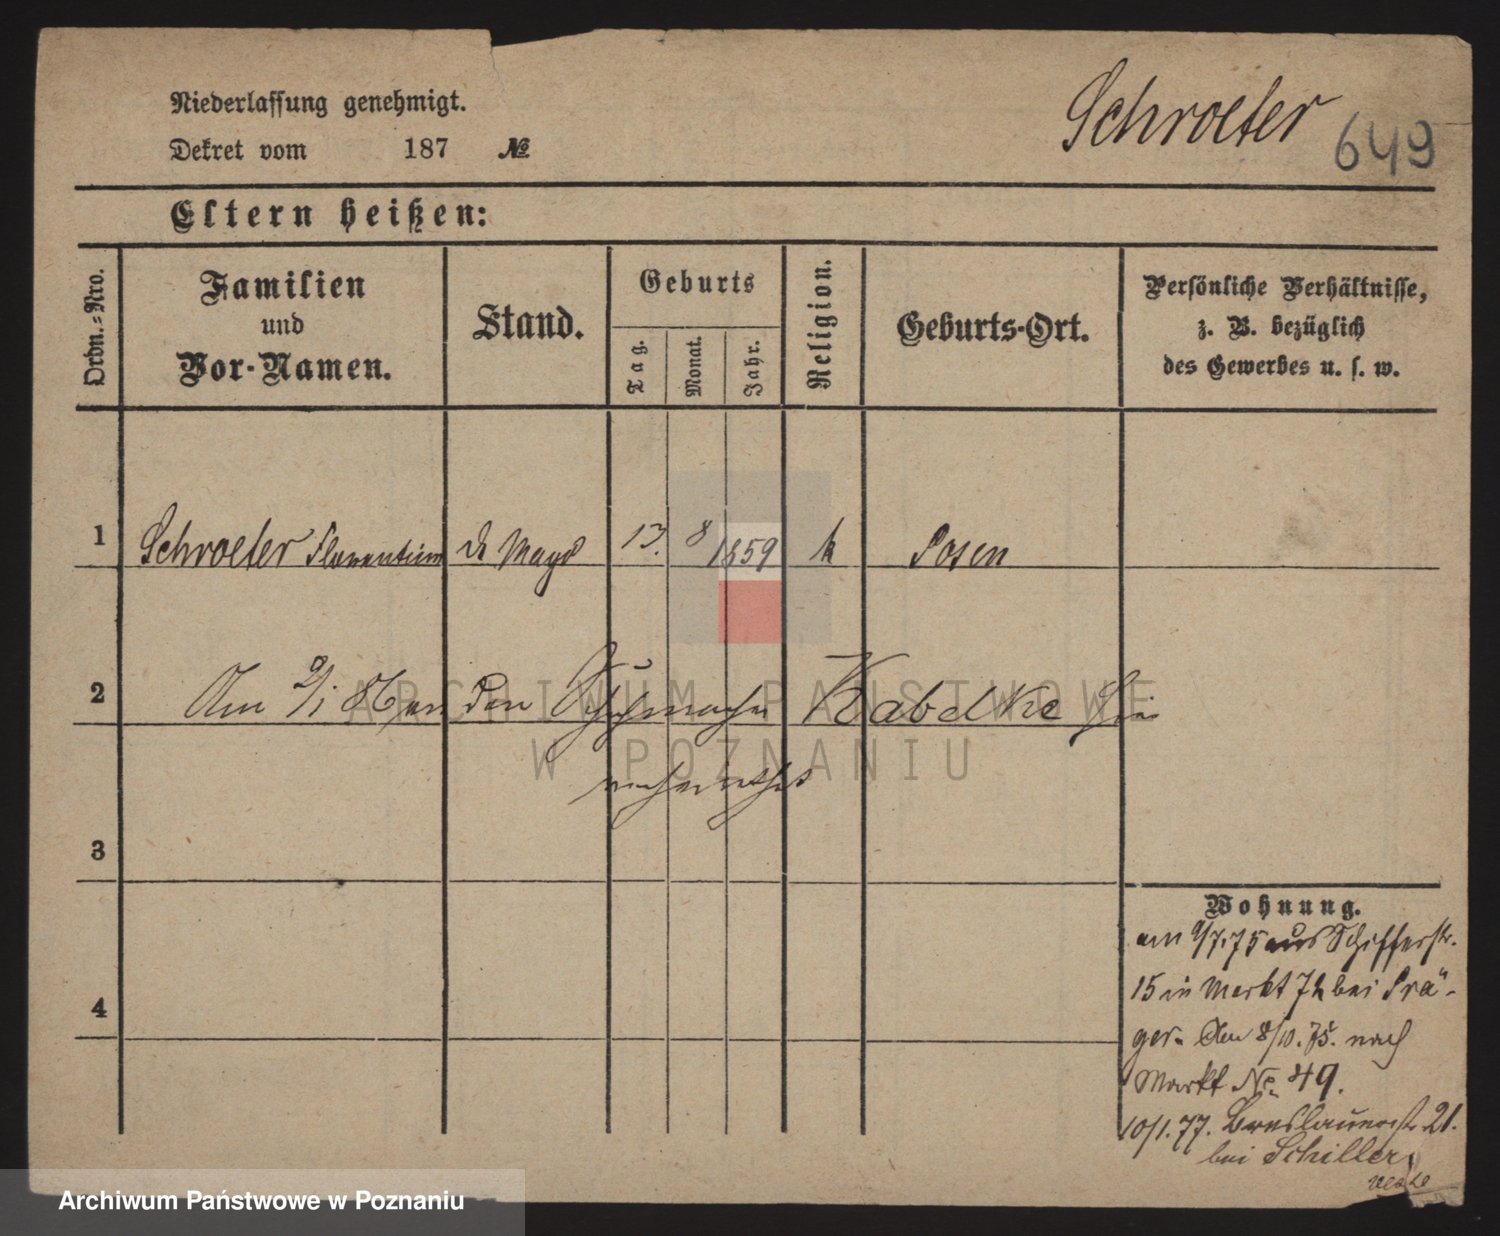 Niederlassung genehmigt.
Dekret vom 187 №
Schroeter 649
Eltern heißen:
Ordn.-Nro.
Familien
und
Vor-Namen.
Stand.
Geburts
Tag.
Monat.
Jahr.
Religion.
Geburts-Ort.
Persönliche Verhältnisse,
z. B. bezüglich
des Gewerbes u. s. w.
1 Schroeter Florentine d. Magd 13. 8 1859 k Posen
2 Am 9/1 86 an den Schuhmacher Kabelke hier
verheirathet
3
4
Wohnung.
am 9/7. 75 aus Schifferstr.
15 in Markt 72 bei Prä-
ger. Am 8/10. 75. nach
Markt No. 49.
10/1. 77. Breslauerstr 21.
bei Schiller
ARCHIWUM PAŃSTWOWE
W POZNANIU
Archiwum Państwowe w Poznaniu